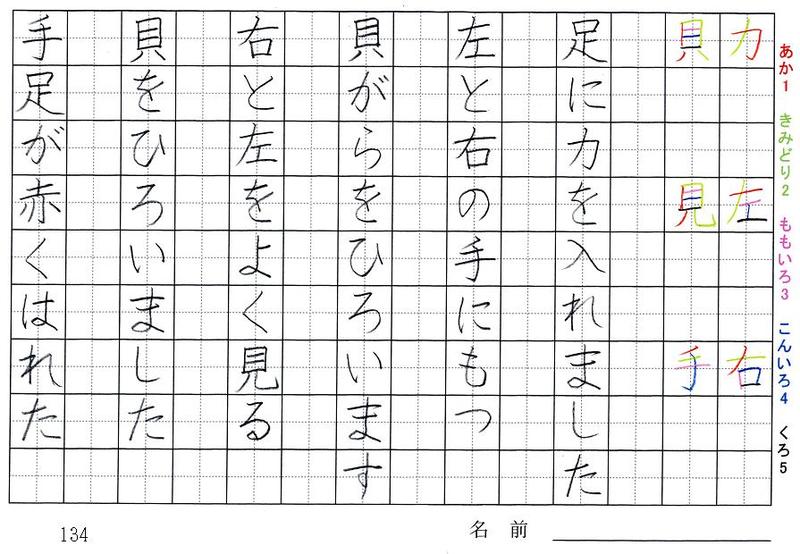 あか1 きみどり2 ももいろ3 こんいろ4 くろ5
力 左 右
貝 見 手
足に力を入れました
左と右の手にもつ
貝がらをひろいます
右と左をよく見る
貝をひろいました
手足が赤くはれた
名前
134